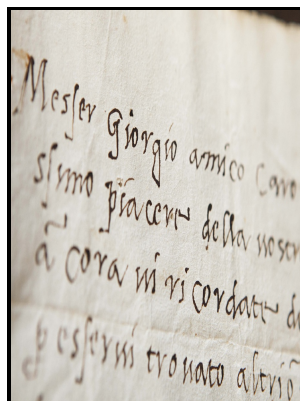 Messer Giorgio amico Caro
ssimo piacere della vostr
ā Cora vi ricordate d
p esservi trovato altri